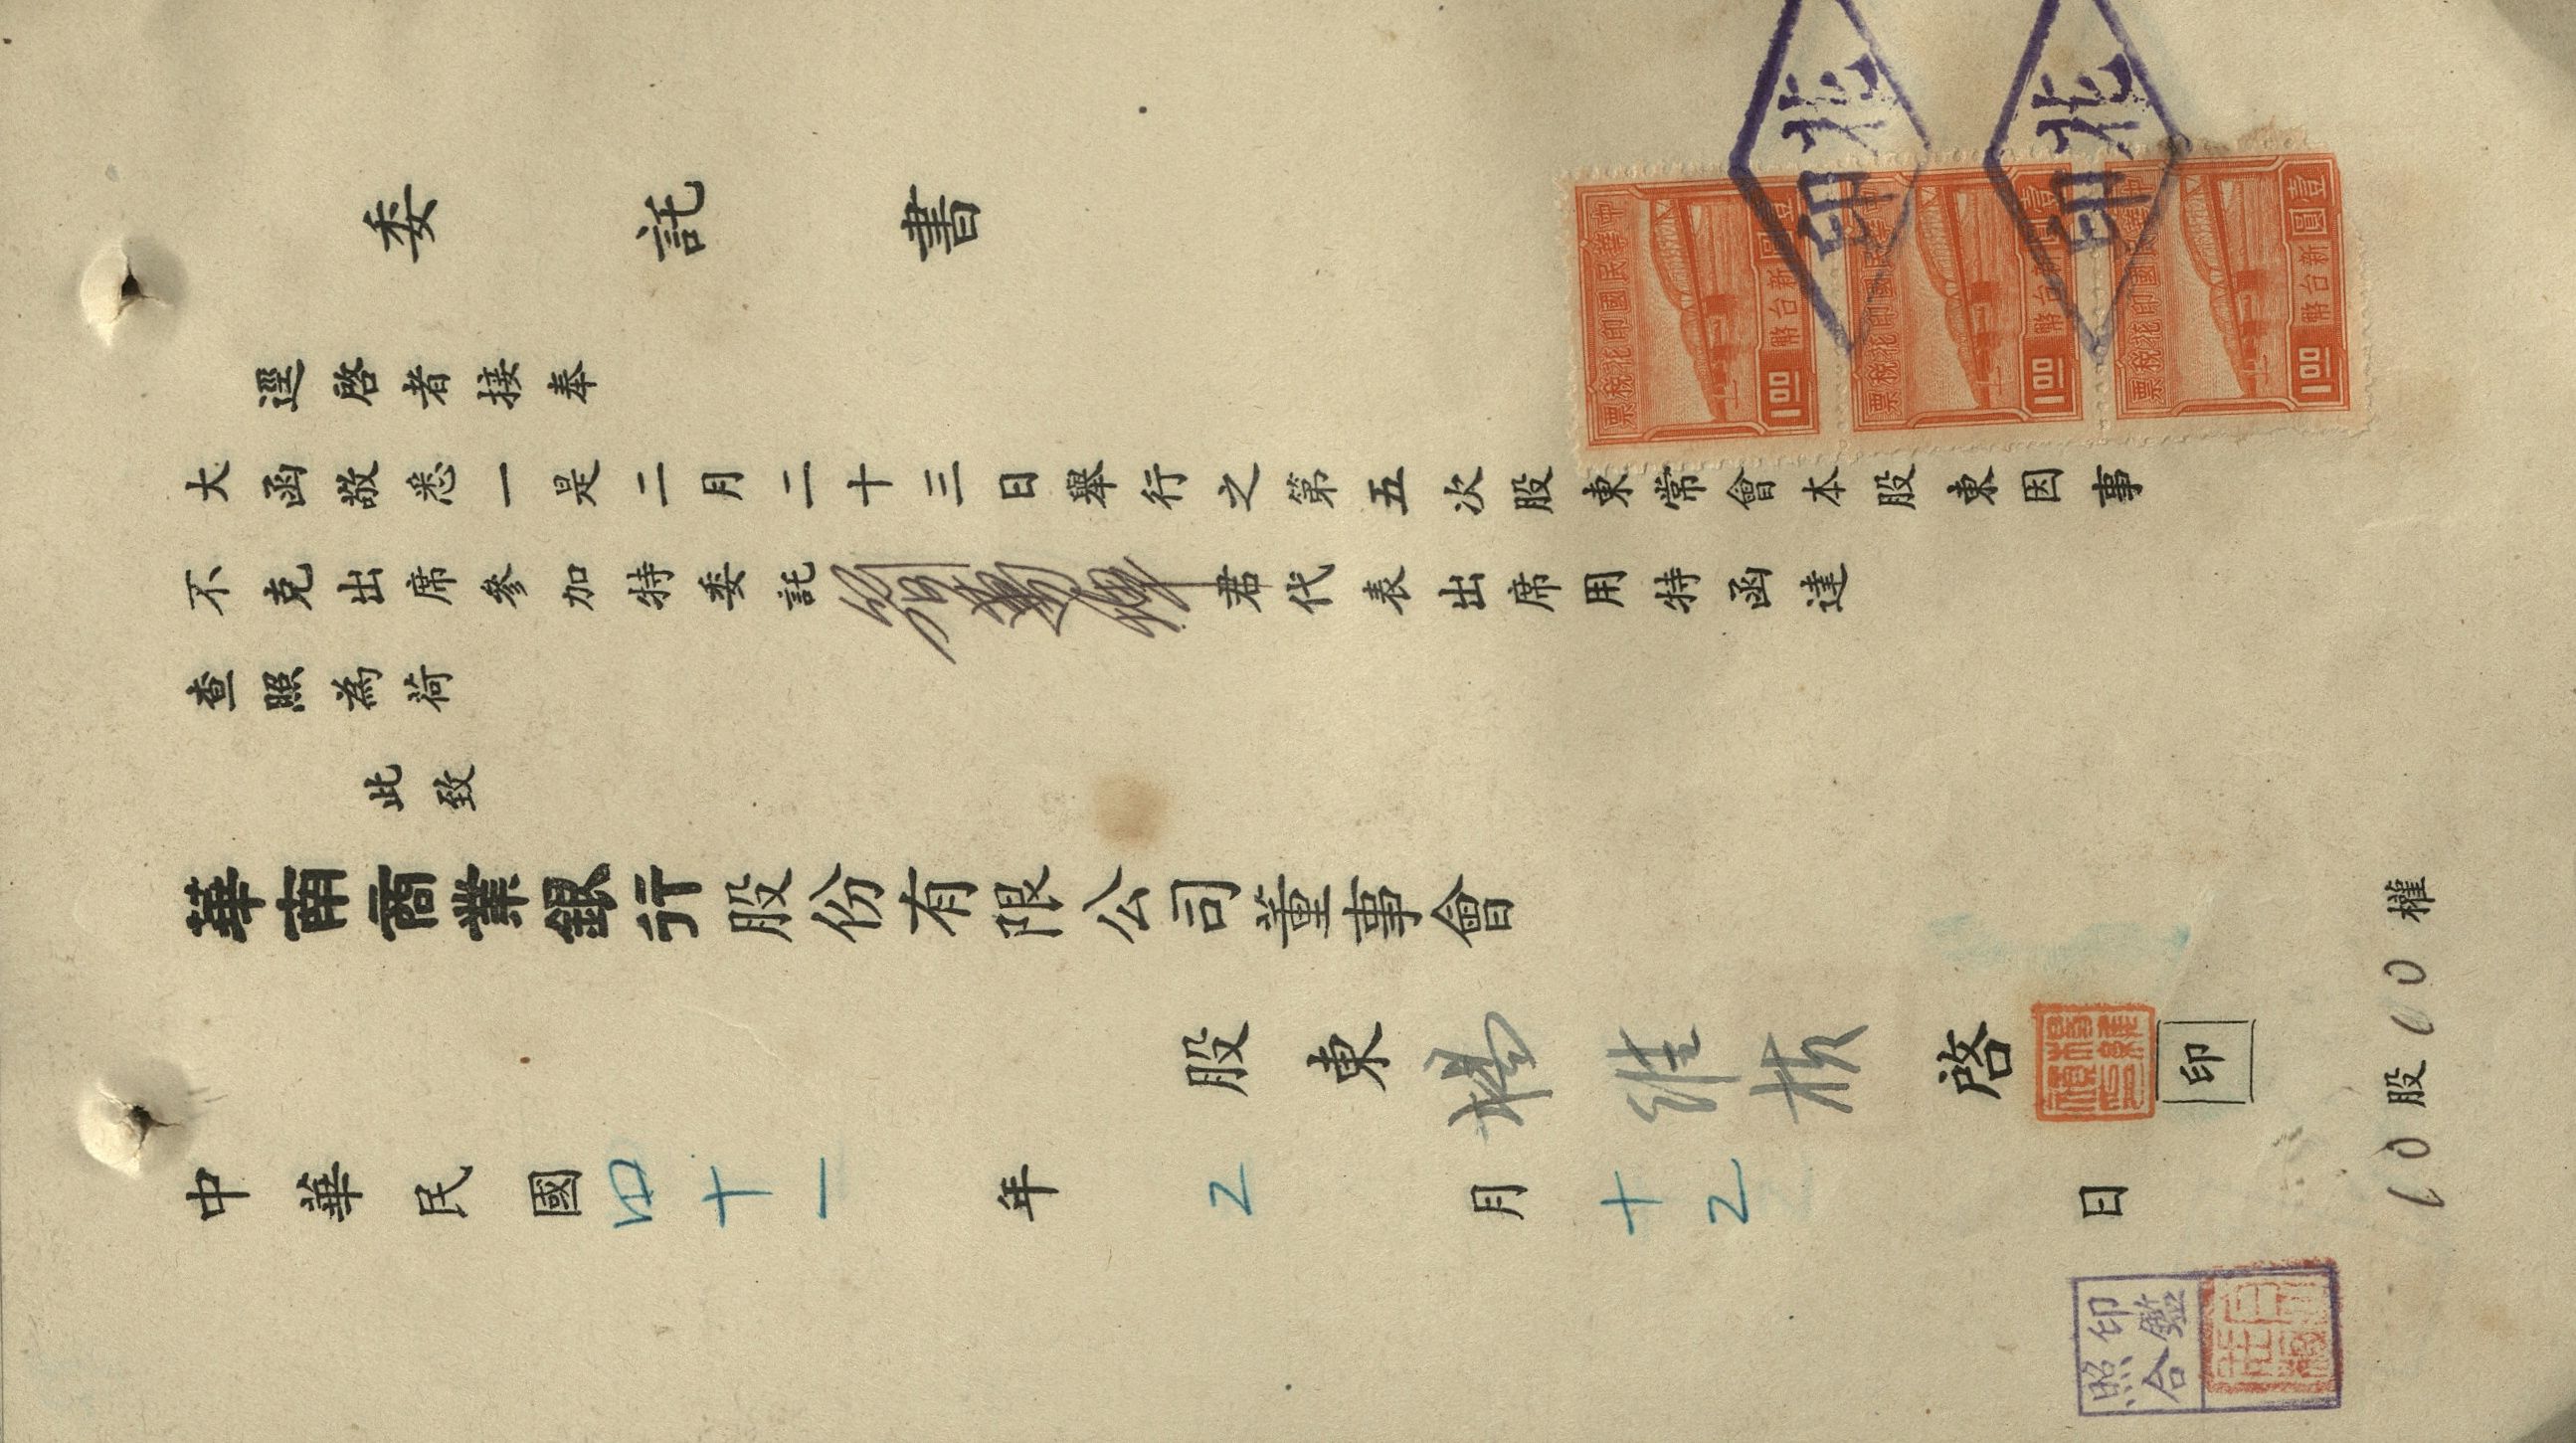 委託書
逕啓者接奉
大函敬悉一是二月二十三日舉行之第五次股東常會本股東因事
不克出席參加特委託
君代表出席用特函達
查照為荷
此致
華南商業銀行股份有限公司董事會
股東楊維核啓
印
中華民國四十一年2月十2日
10股10權
中華民國印花稅票
新台幣壹圓
1.00
中華民國印花稅票
新台幣壹圓
1.00
中華民國印花稅票
新台幣壹圓
1.00
北印
北印
印鑑
照合